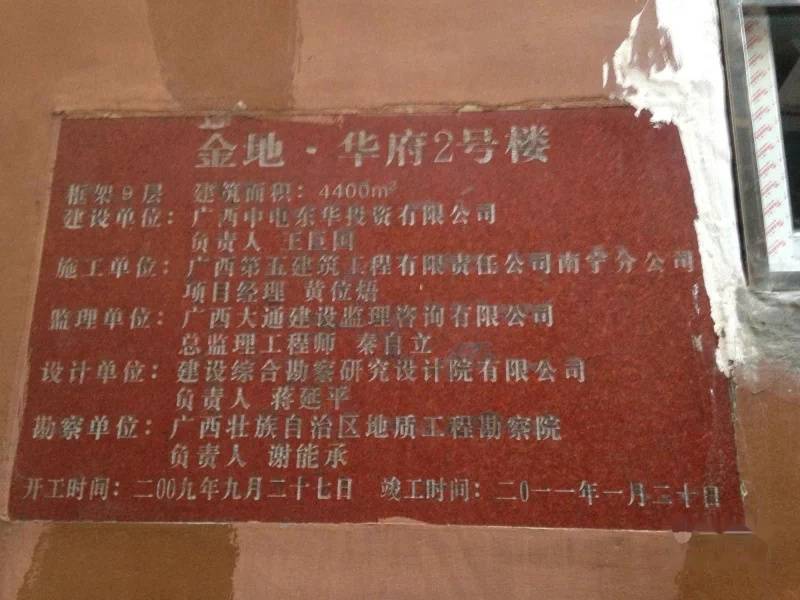 金地·华府2号楼
框架9层 建筑面积：4400m²
建设单位：广西中电东华投资有限公司
负责人 王巨国
施工单位：广西第五建筑工程有限责任公司南宁分公司
项目经理 黄位焐
监理单位：广西大通建设监理咨询有限公司
总监理工程师 秦自立
设计单位：建设综合勘察研究设计院有限公司
负责人 蒋延平
勘察单位：广西壮族自治区地质工程勘察院
负责人 谢能承
开工时间：二00九年九月二十七日 竣工时间：二0一一年一月二十日